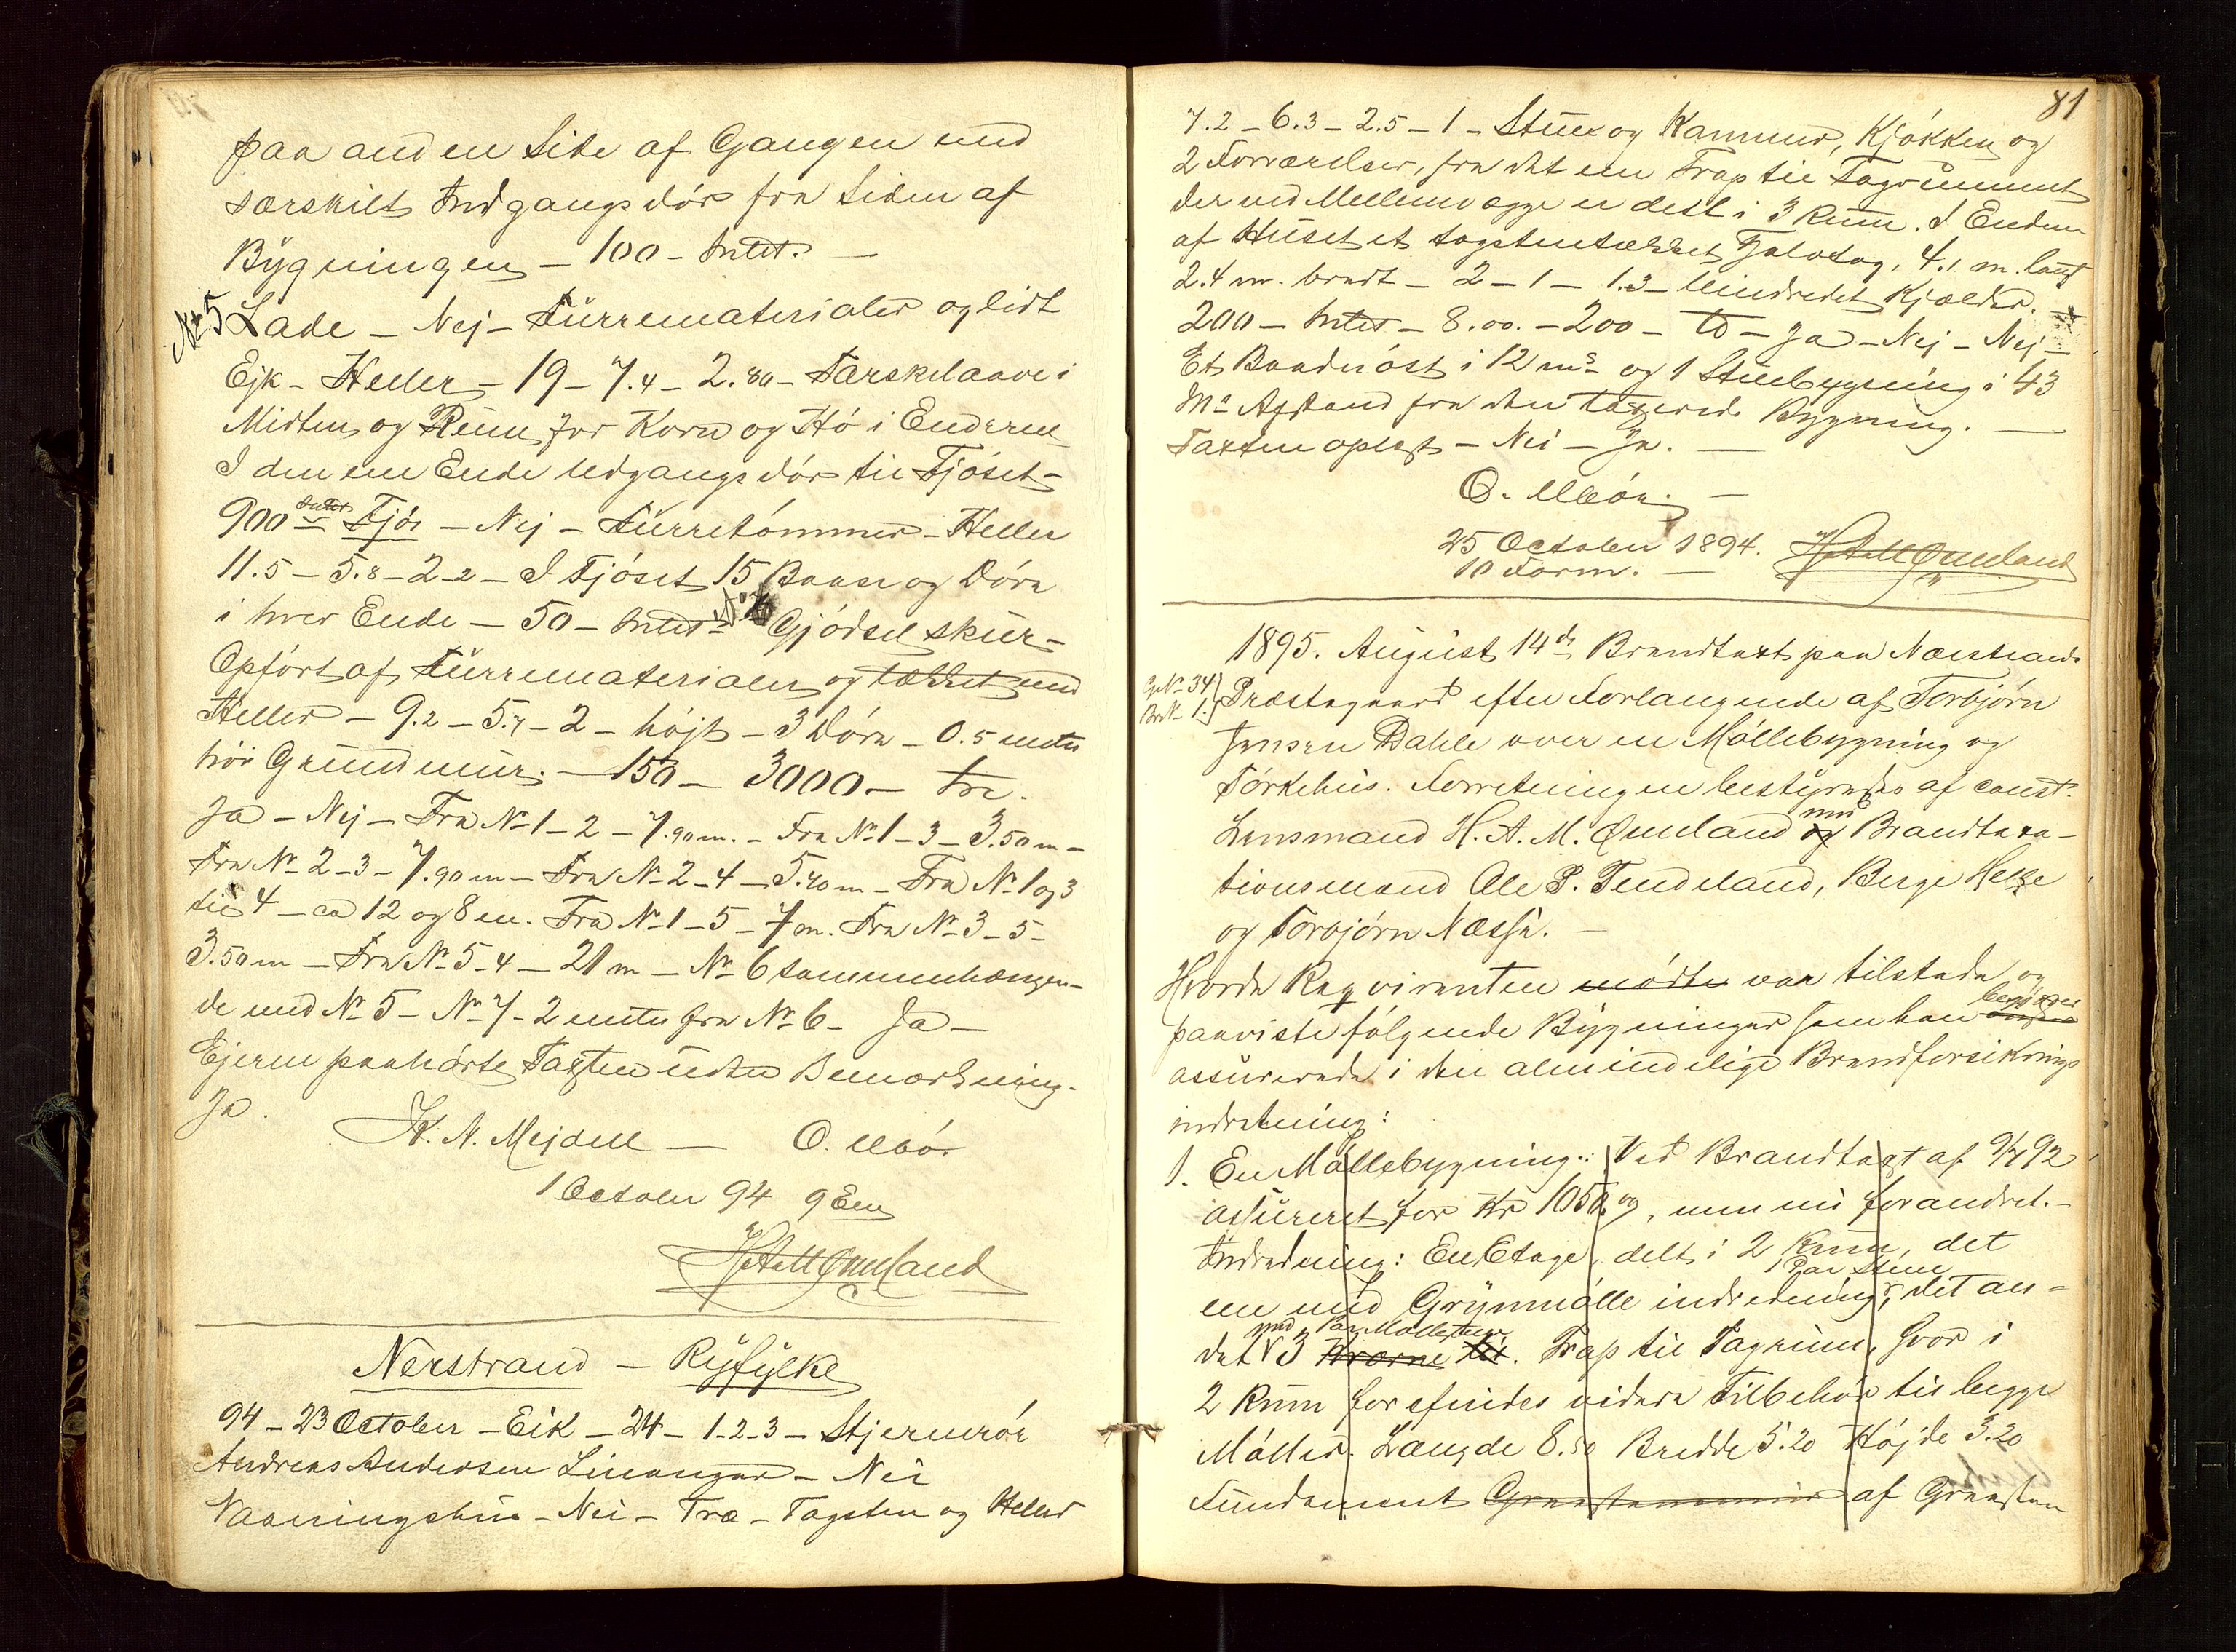 paa anden Side af Gangen med
særskilt Indgangsdør fra Siden af
Bygningen – 100 – Intet. –
No 5 Lade – Nej – Furrematerialer og lidt
Ejk – Heller – 19 – 7.4 – 2.80 – Tærskelaave i
Midten og Rum for Korn og Hø i Enderne
I den ene Ende Udgangsdør til Fjøset –
900 Intet Fjøs – Nej – Furretømmer – Heller
11.5 – 5.8 – 2.2 – I Fjøset 15 Baase og Døre
i hver Ende – 50 – Intet – Gjødselskur –
Opført af Furrematerialer og tækket med
Heller – 9.2 – 5.7 – 2 – højt – 3 Døre – 0.5 meter
høi Grundmur. – 150 – 3000 – tre.
Ja – Nej – Fra No 1 – 2 – 7.90 m. – Fra No 1 – 3 – 3.50 m –
Fra No 2 – 3 – 7.90 m – Fra No 2 – 4 – 5.40 m – Fra No 1 og 3
til 4 – ca 12 og 8 m. Fra No 1 – 5 – 7 m. Fra No 3 – 5 –
3.50 m – Fra No 5 – 4 – 21 m – No 6 sammenhængen-
de med No 5 – No 7 – 2 meter fra No 6 – Ja –
Ejeren paahørte Taxten uden Bemærkning.
Ja.
K. N. Mejdell – O. Elbø.
1 October 94 9 Em
H A M Ømeland
Nerstrand – Ryfylke
94 – 23 October – Eik – 24 – 1 – 2 – 3 – Stjernrør
Andreas Andersen – Nei
Vaaningshus – Nei – Træ – Tagsten og Heller
81
7.2 – 6.3 – 2.5 – 1 – Stue og Kammer, Kjøkken og
2 Forværelser, fra det ene Trap til Tagrummet
der ved Mellemvægge er delt i 3 Rum. I Enden
af Huset et tagstentækket Halvtag, 4.1 m. langt
2.4 m. bredt – 2 – 1 – 1.3 – Uindredet Kjælder. –
200 – Intet – 8.00. – 200 – to – Ja – Nej – Nej –
Et Baadnøst i 12 ms og 1 Stuebygning i 43
Ms Afstand fra den taxerede Bygning. –
Taxten oplæst – Nei – Ja. –
O. Elbø. –
25 October 1894. H A M Ømeland
10 Form. –
1895. August 14de Brandtaxt paa Nærstrands
G. No 34 Præstegaard efter Forlangende af Torbjørn
Br. No 1.
Jensen Dahle over en Møllebygning og
Tørkehus. Forretningen bestyredes af const.
Lensmand H. A. M. Ømeland og med Brandtaxa-
tionsmænd Ole P. Tendeland, Berge
og Torbjørn Næssa. –
Hvorda Reqvirenten mødte var tilstede og
paaviste følgende Bygninger som han begjærer
assurerede i den almindelige Brandforsikrings
indretning:
1. En Møllebygning: Ved Brandtaxt af 9/7 92
assureret for Kr 1050.00, men nu forandret. –
Indredning: En Etage, delt i 2 Rum, det
ene med Grynmølle indredning, 1 Par Stene, det an-
det med 3 Par Møllestene Kværne til. Trap til Tagrum, hvor i
2 Rum forefindes videre Tilbehør til begge
Møller. Længde 8.50 Bredde 5.20 Højde 3.20
Fundament Graastensmur af Graasten